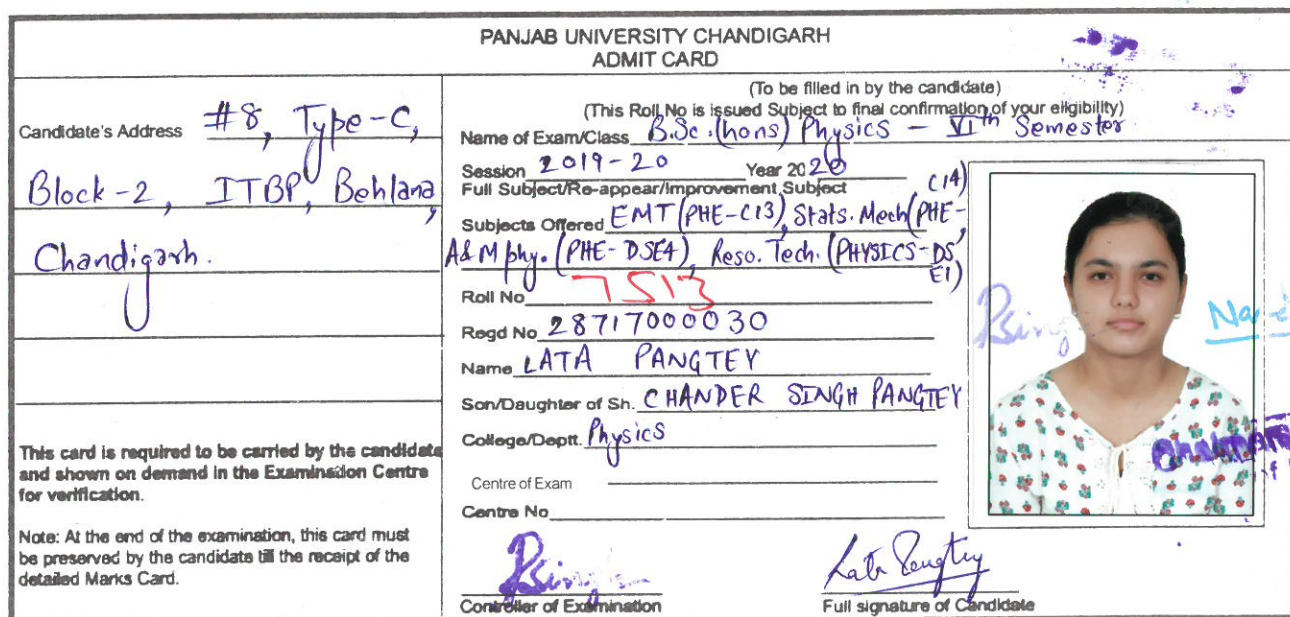 PANJAB UNIVERSITY CHANDIGARH
ADMIT CARD
Candidate's Address #8, Type-C,
Block-2, ITBP, Behlana,
Chandigarh.
This card is required to be carried by the candidate
and shown on demand in the Examination Centre
for verification.
Note: At the end of the examination, this card must
be preserved by the candidate till the receipt of the
detailed Marks Card.
(To be filled in by the candidate)
(This Roll No is issued Subject to final confirmation of your eligibility)
Name of Exam/Class B.Sc.(hons) Physics - VIth Semester
Session 2019-20 Year 2020
Full Subject/Re-appear/Improvement Subject
Subjects Offered EMT(PHE-C13), Stats. Mech(PHE-C14),
A&M phy. (PHE-DSE4), Reso. Tech. (PHYSICS-DSE1)
Roll No 7513
Regd No 28717000030
Name LATA PANGTEY
Son/Daughter of Sh. CHANDER SINGH PANGTEY
College/Deptt. Physics
Centre of Exam
Centre No
Controller of Examination
Lata Pangtey
Full signature of Candidate